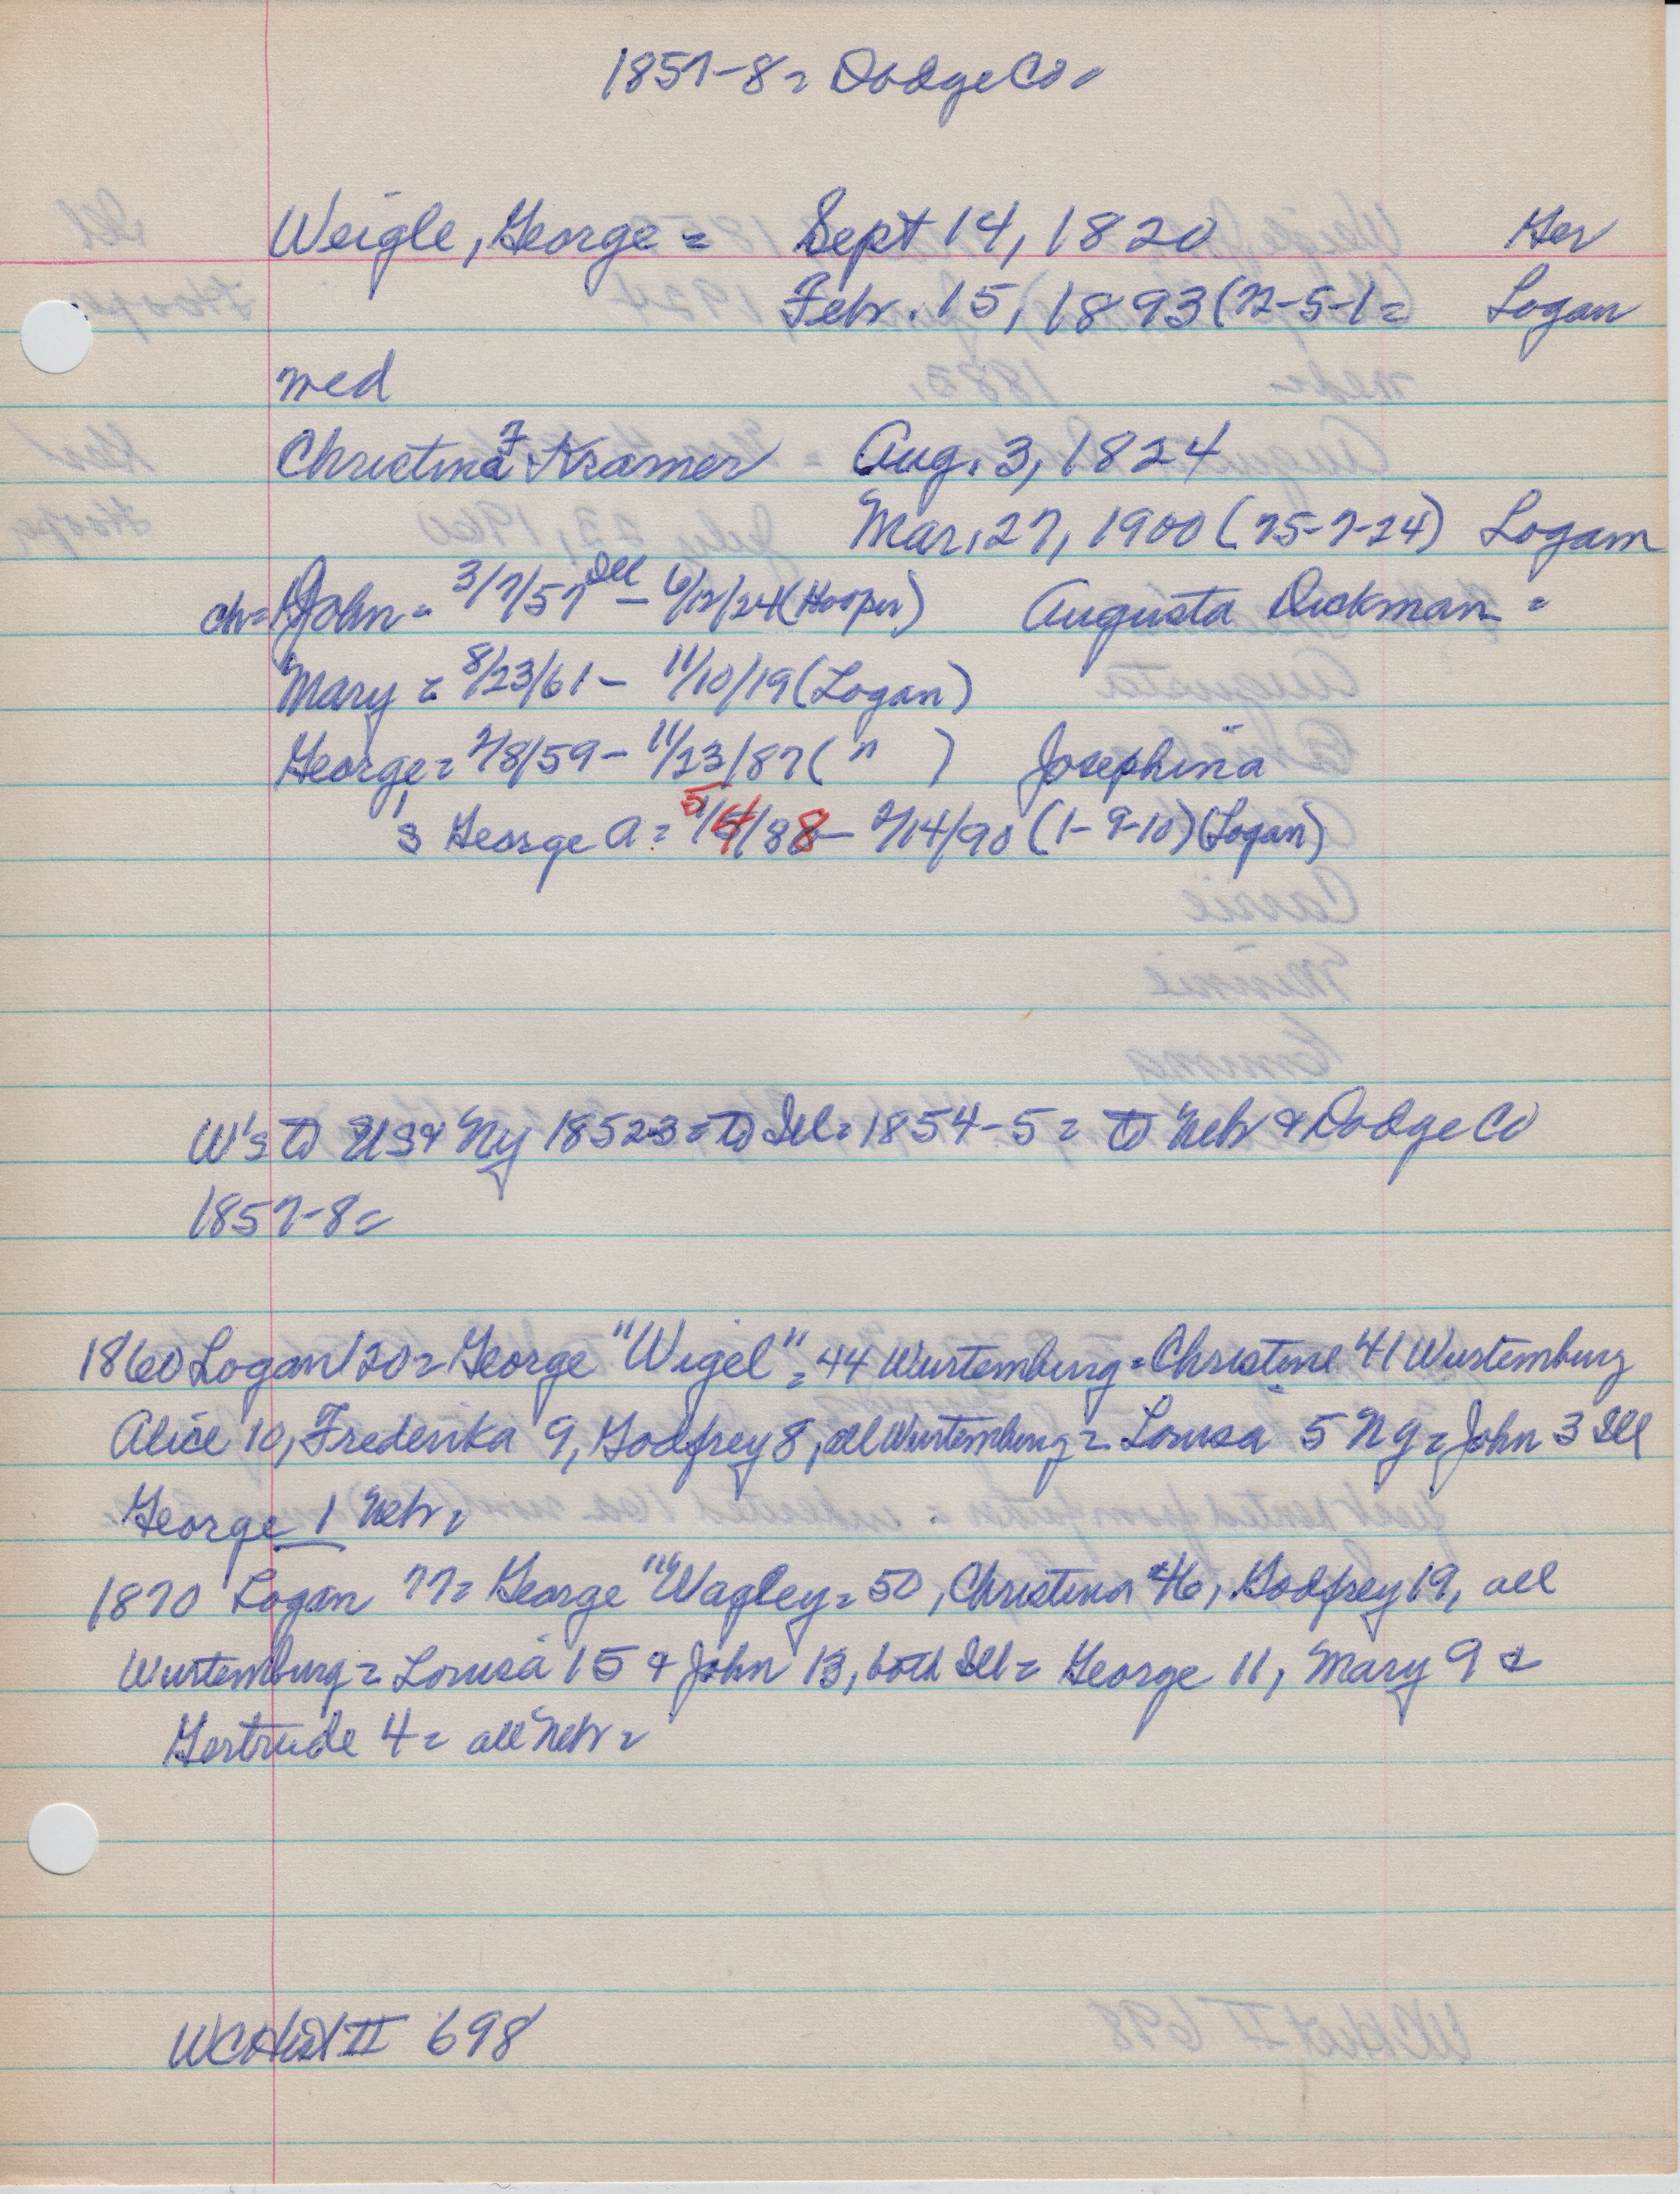 1857-8= Dodge Co=
Weigle, George = Sept 14, 1820 Ger
Febr. 15, 1893 (72-5-1= Logan
med
Christina F Kramer Aug. 3, 1824
Mar. 27, 1900 (75-7-24) Logan
ch= John = 3/7/57 Ill - 6/12/24 (Hooper) Augusta Dickman =
Mary = 8/23/61 - 11/10/19 (Logan)
George = 2/8/59 - 11/23/87 ( " ) Josephina
s George A = 5/4/88 - 2/14/90 (1-9-10) (Logan)
W's to US & NY 1852-3 = to Ill = 1854-5 = to Nebr & Dodge Co
1857-8=
1860 Logan 120= George "Wigel" = 44 Wurtemburg = Christine 41 Wurtemburg
Alice 10, Frederika 9, Godfrey 8, all Wurtemburg = Louisa 5 NY = John 3 Ill
George 1 Nebr.
1870 Logan 77= George "Wagley = 50, Christina 46, Godfrey 19, all
Wurtemburg = Louisa 15 & John 13, both Ill = George 11, Mary 9 &
Gertrude 4 = all Nebr =
WCHist II 698